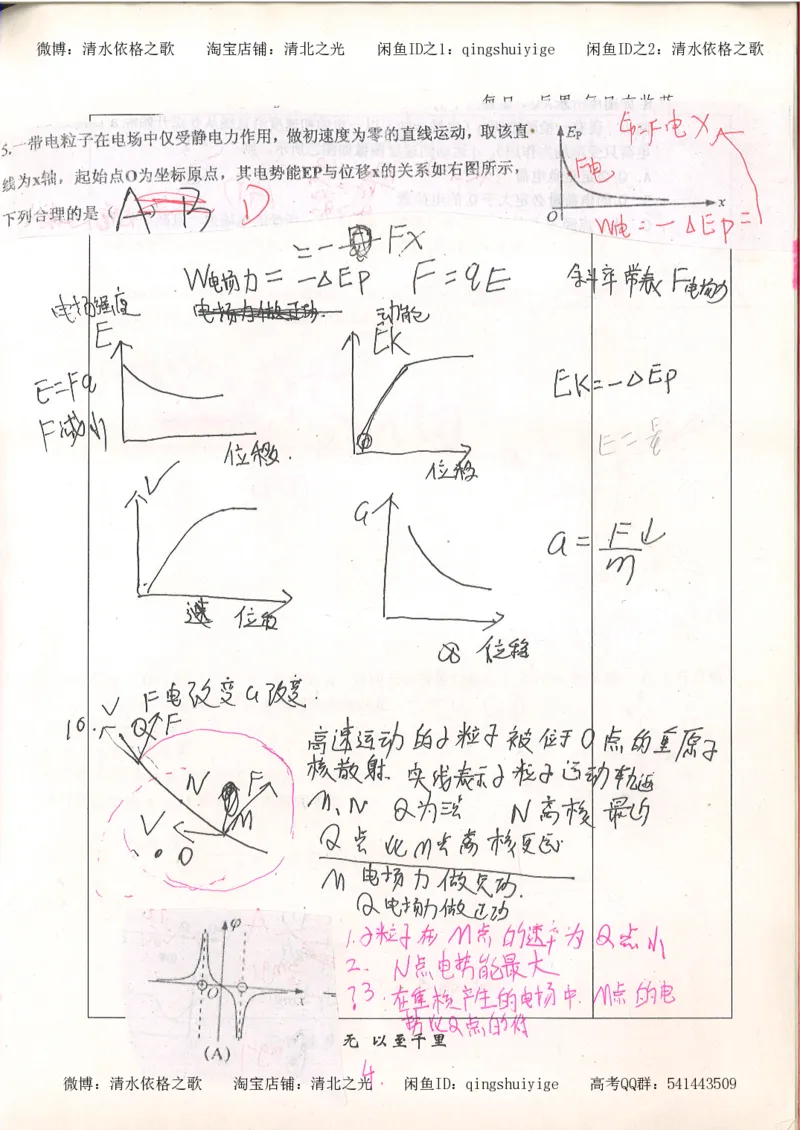 微博：清水依格之歌 淘宝店铺：清北之光 闲鱼ID之1：qingshuiyige 闲鱼ID之2：清水依格之歌
5.一带电粒子在电场中仅受静电力作用，做初速度为零的直线运动，取该直
线为x轴，起始点O为坐标原点，其电势能EP与位移x的关系如右图所示，
下列合理的是（ A B D
Ep
F电
O
x
Ep=F电X
W电=-ΔEp=
=- Fx
W电场力=-ΔEp F=qE 斜率带表F电场力
电场强度
电场力做正功.
动能
E
EK
E=Fq
F减小
位移.
位移
EK=-ΔEp
E=
V
位移
a
位移
a=F↓/m
F电改变a改变.
16.
V
Q
F
N
F
M
V
O
高速运动的α粒子被位于O点的重原子
核散射.实线表示α粒子运动轨迹
M、N Q为三点 N离核最近
Q点比M点离核更远
M电场力做负功.
Q电场力做正功
1.α粒子在M点的速率为Q点小
2. N点电势能最大
?3.在重核产生的电场中.M点的电
势比Q点的低
φ
O
x
(A)
无 以至千里
4.
微博：清水依格之歌 淘宝店铺：清北之光 闲鱼ID：qingshuiyige 高考QQ群：541443509